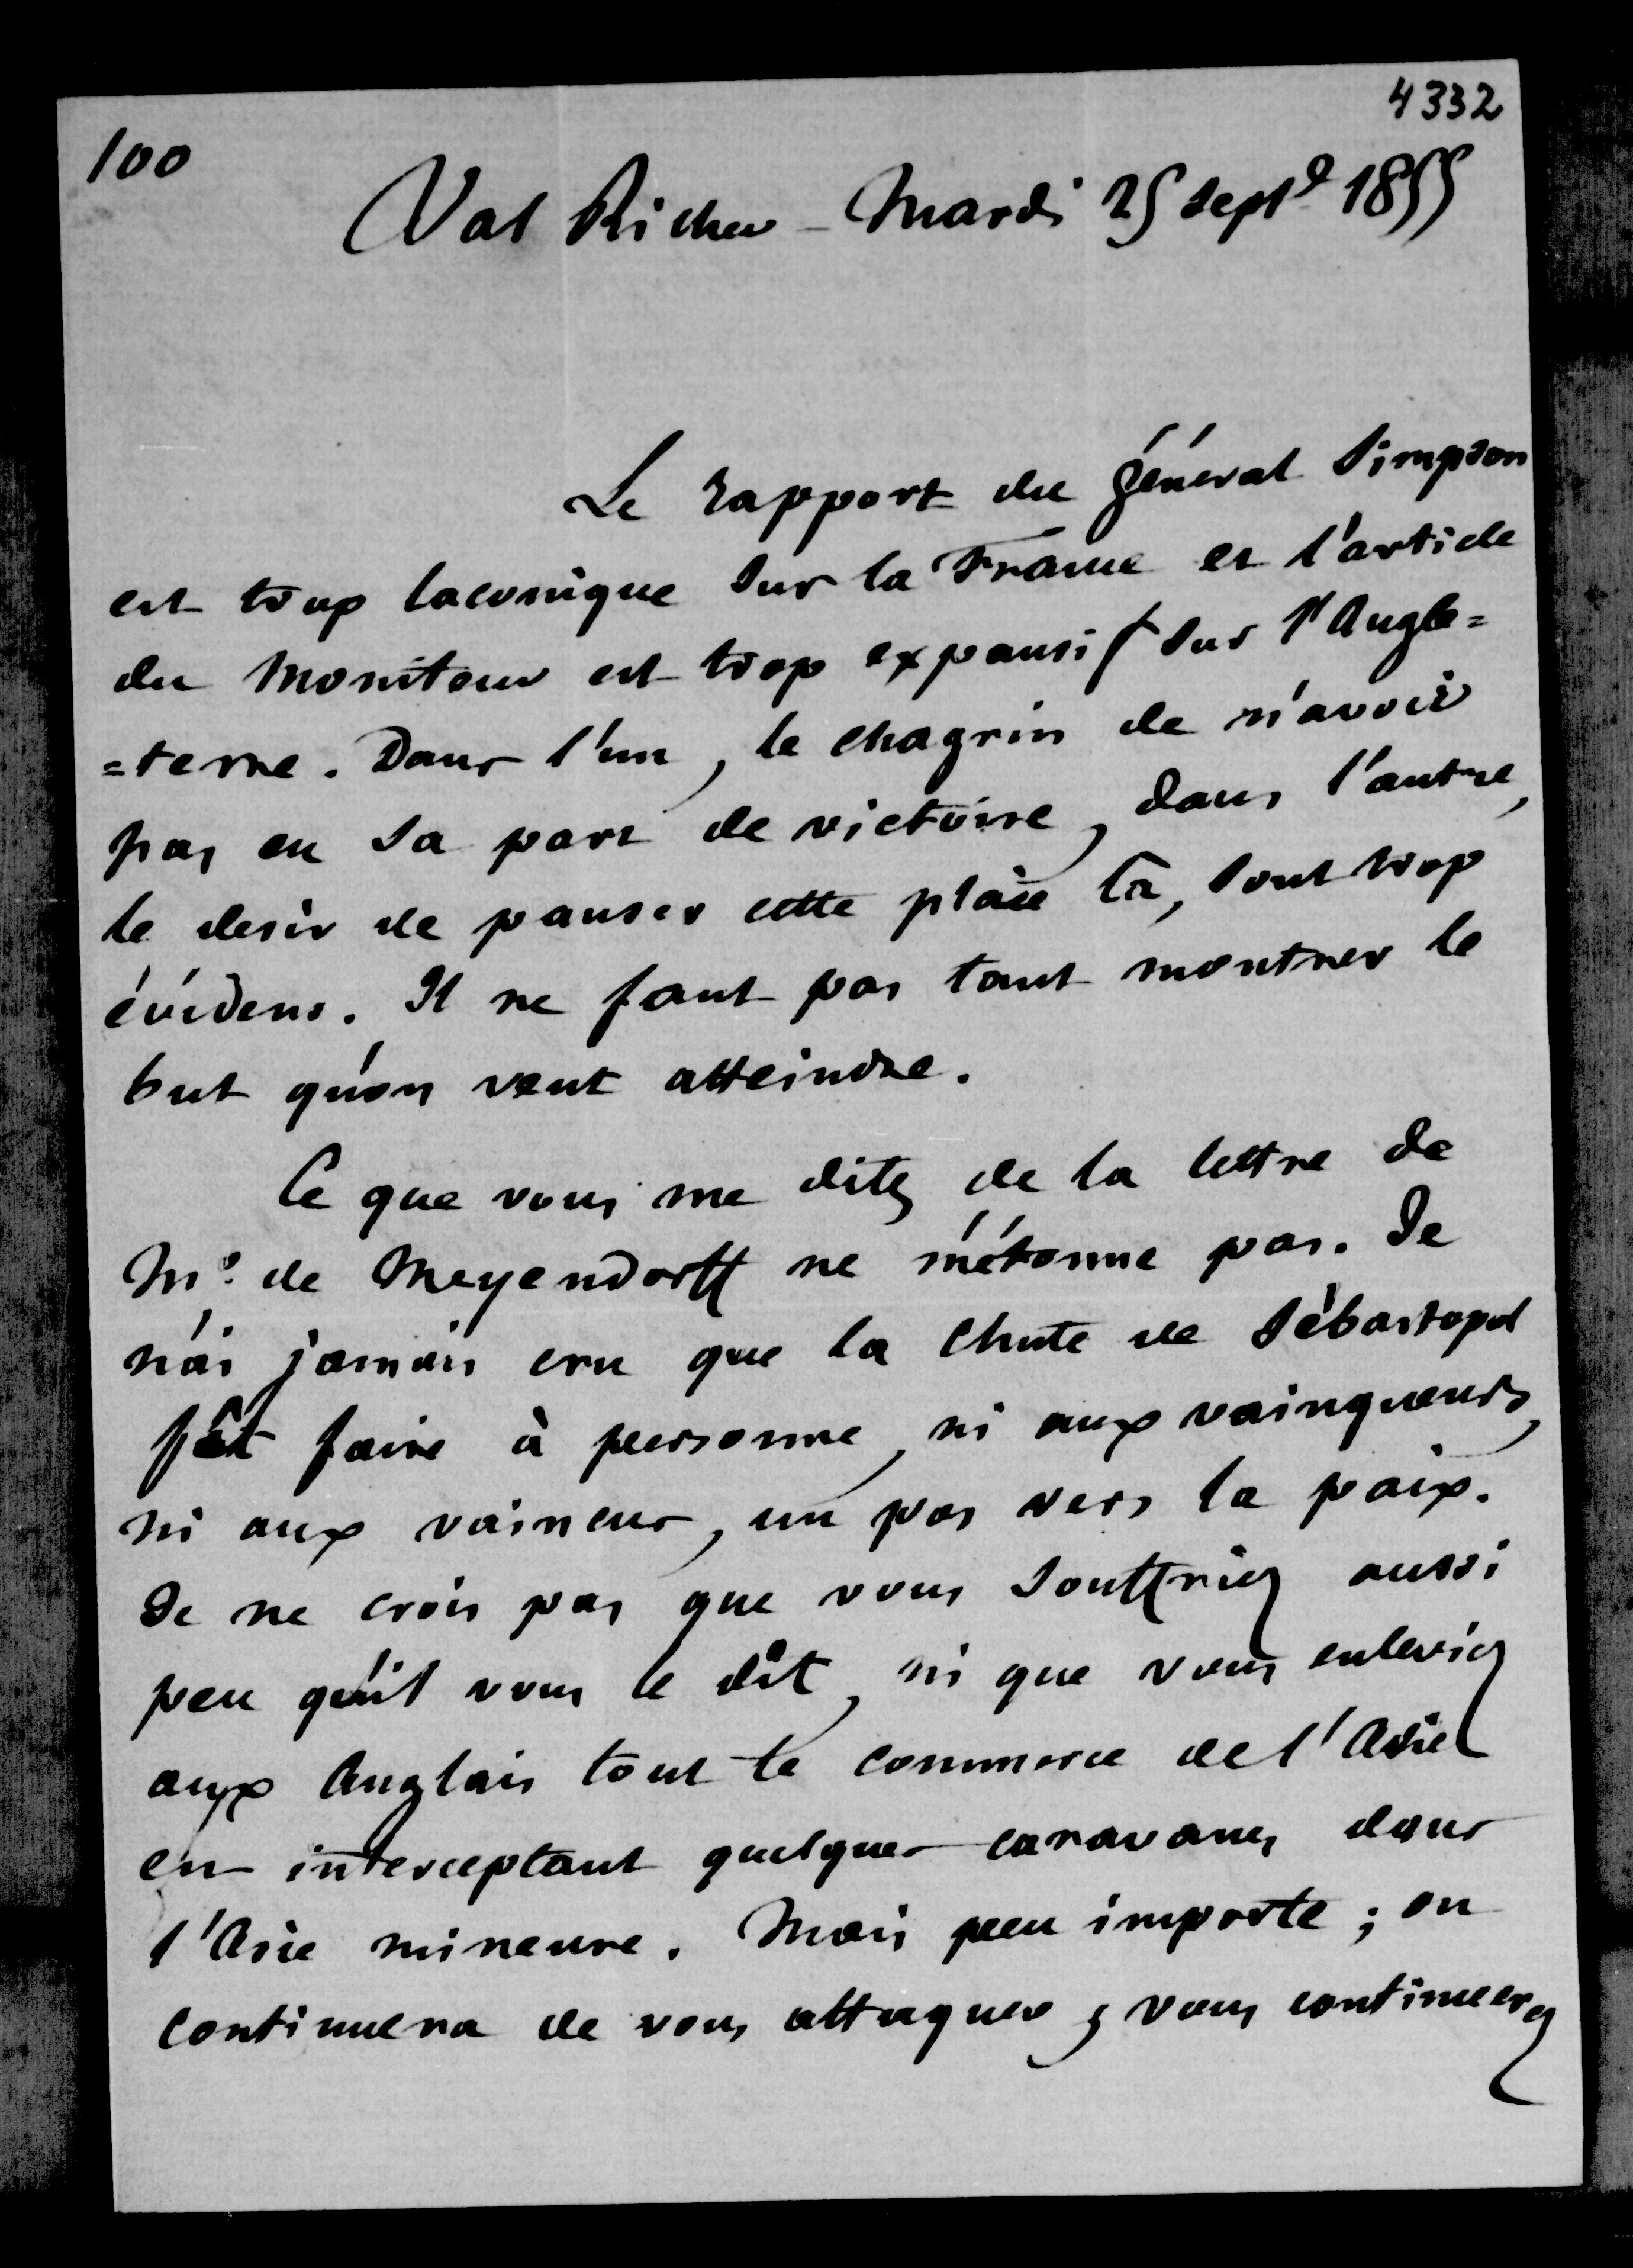 4332
100
Val Richer – Mardi 25 Septe 1855
Le rapport du Général Simpson
est trop laconique sur la France et l'article
du Moniteur est trop expansif sur l'Angle=
=terre. Dans l'un, le chagrin de n'avoir
pas eu sa part de victoire, dans l'autre,
le desir de panser cette plaie là, sont trop
évidens. Il ne faut pas tant montrer le
but qu'on veut atteindre.
Ce que vous me dites de la lettre de
Mr. de Meyendorff ne m'étonne pas. Je
n'ai jamais cru que la chute de Sébastopol
fît faire à personne, ni aux vainqueurs,
ni aux vaincus, un pas vers la paix.
Je ne crois pas que vous souffriez aussi
peu qu'il vous le dit, ni que vous enleviez
aux Anglais tout le commerce de l'Asie
en interceptant quelques caravanes dans
l'Asie mineure. Mais peu importe ; on
continuera de vous attaquer ; vous continuerez